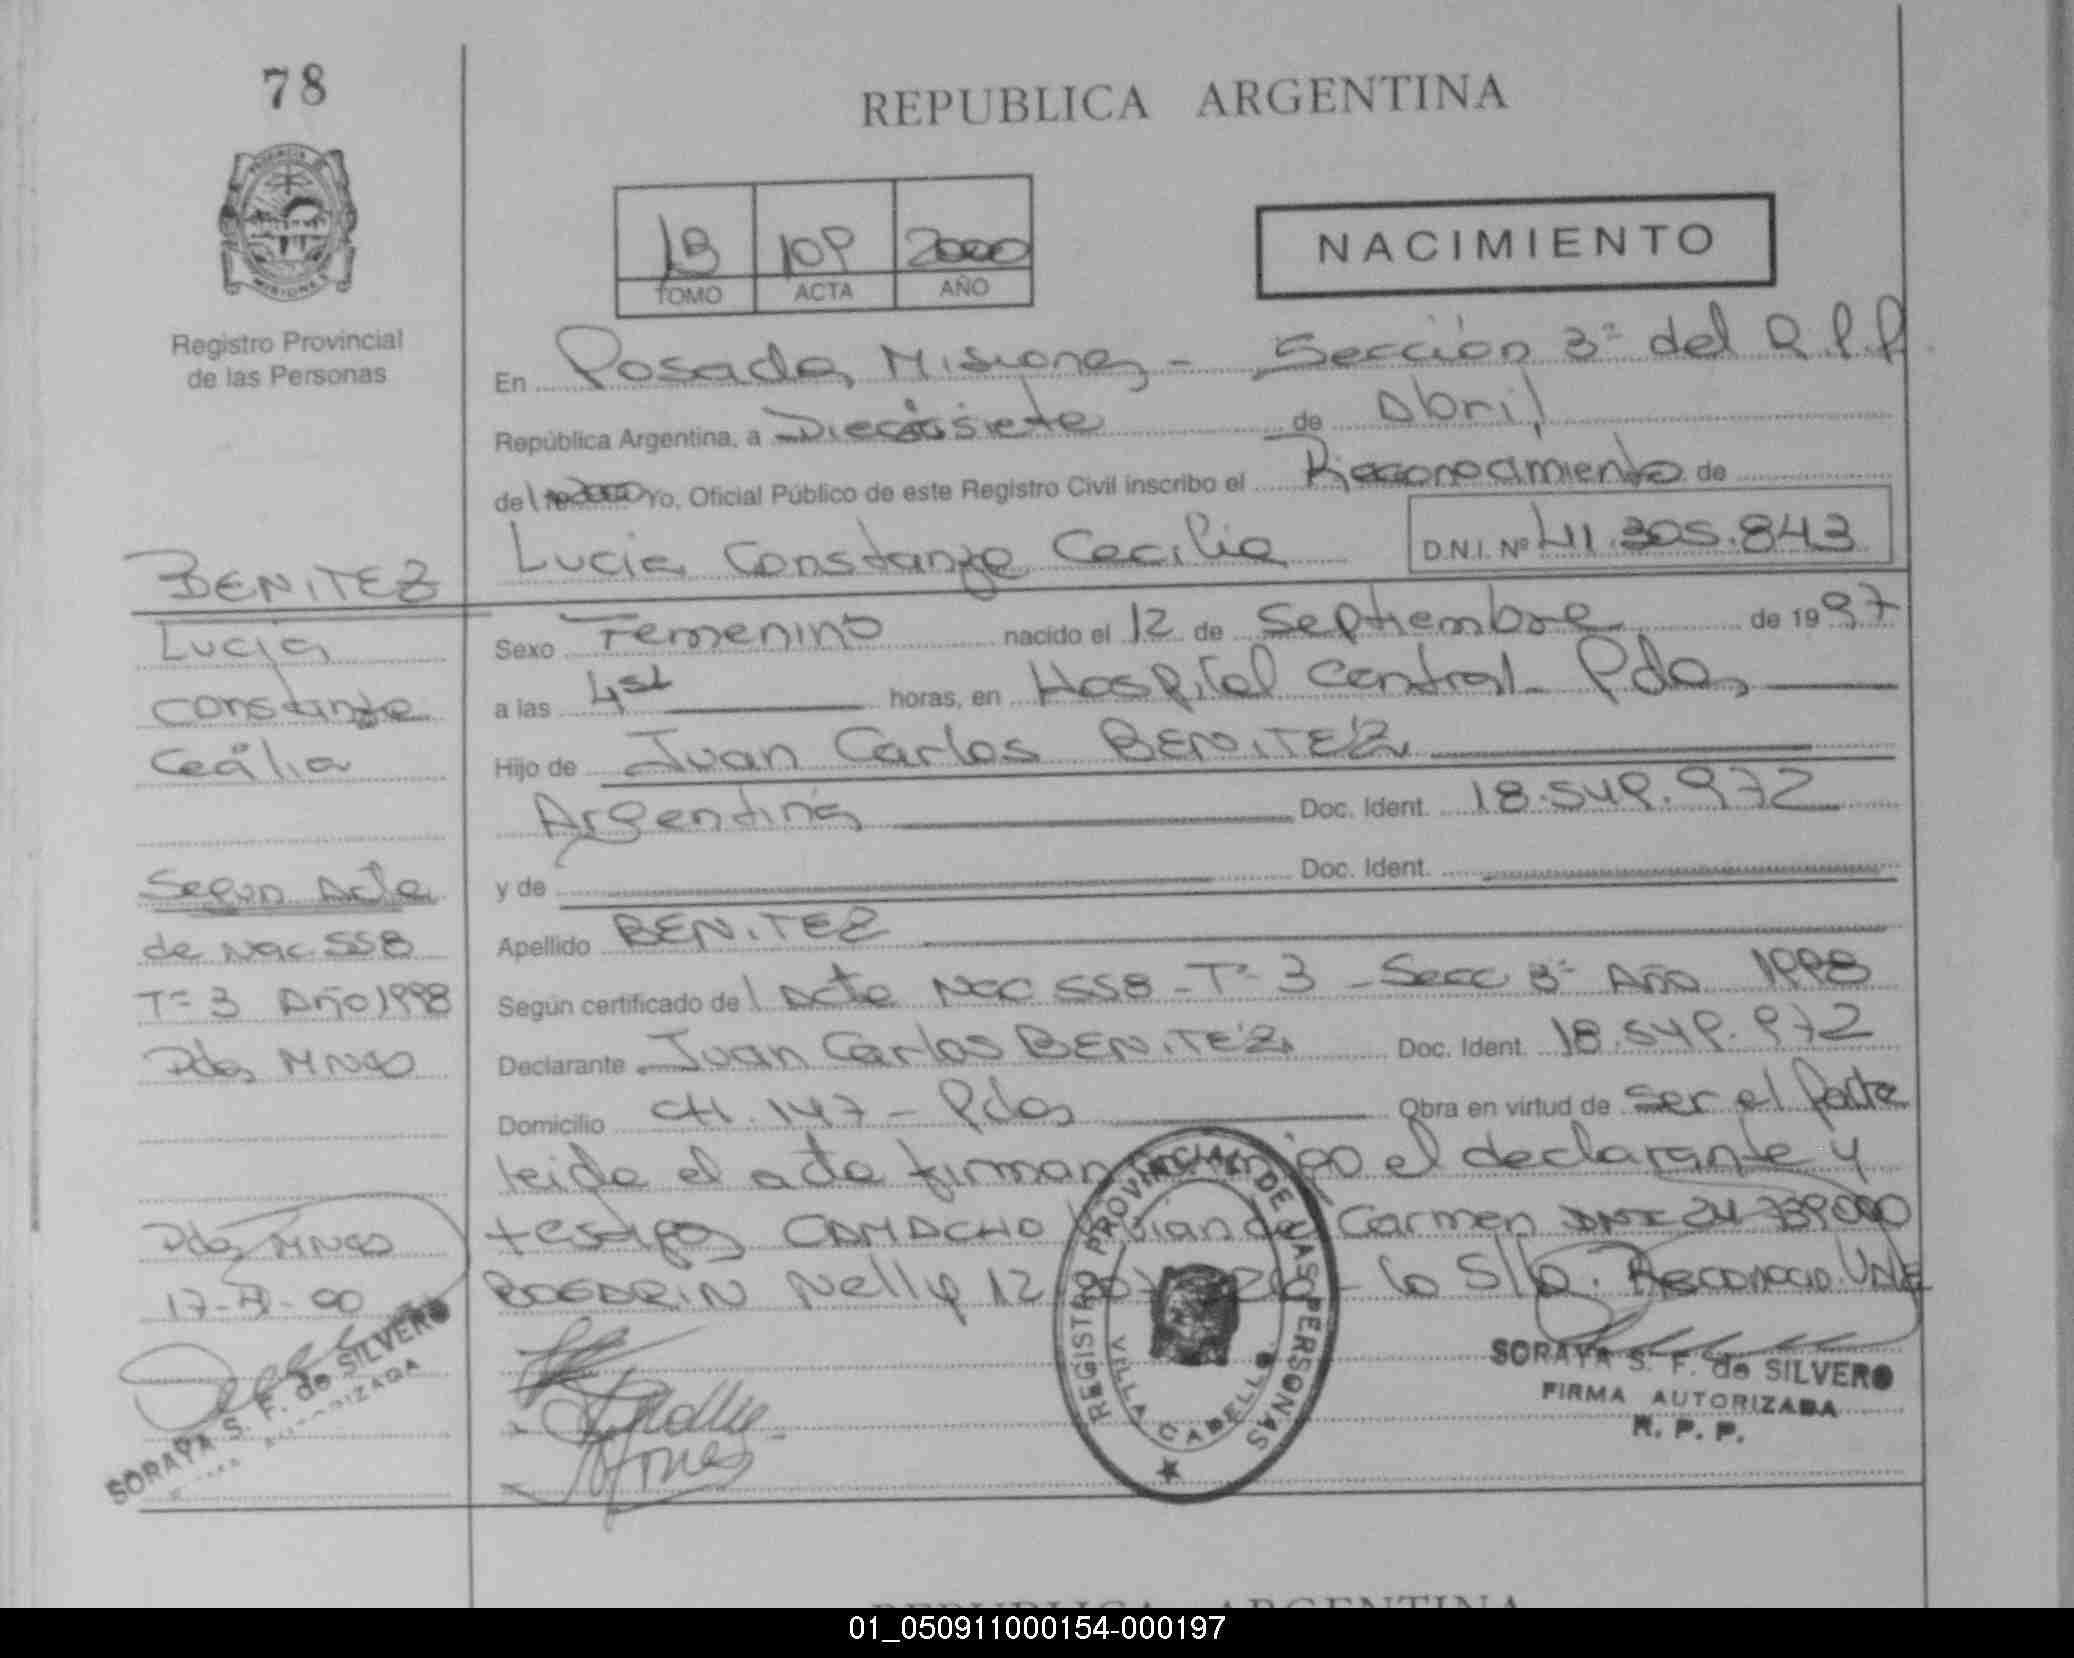 78
REPUBLICA ARGENTINA
1B 109 2000
TOMO ACTA AÑO
NACIMIENTO
Registro Provincial
de las Personas
En Posadas Misiones - Sección 3ª del R.P.P
República Argentina, a Diecisiete de Abril
de 2000 Yo, Oficial Público de este Registro Civil inscribo el Reconocimiento de
Lucia Constanza Cecilia D.N.I. Nº 41.305.843
BENITEZ
Lucia
Constanza
Cecilia
Segun Acta
de Nac 558
Tº 3 Año 1998
Pdas Mnes
Pdas Mnes
17-4-00
SORAYA S. F. de SILVERO
Sexo Femenino nacido el 12 de Septiembre de 1997
a las 4 horas, en Hospital Central Pdas
Hijo de Juan Carlos BENITEZ
Argentina Doc. Ident. 18.549.972
y de Doc. Ident.
Apellido BENITEZ
Según certificado del Acta Nac 558 - Tº 3 - Secc 3ª Año 1998
Declarante Juan Carlos BENITEZ Doc. Ident. 18.549.972
Domicilio CH. 147 - Pdas Obra en virtud de ser el Padre
leida el acta firman el declarante y
testigos CAMACHO Carmen DNI 24.739.000
Nelly 12 lo S/R. Reconocio. Vale
REGISTRO PROVINCIAL DE LAS PERSONAS
VILLA CABELLO
SORAYA S. F. de SILVERO
FIRMA AUTORIZADA
R. P. P.
REPUBLICA ARGENTINA
01_050911000154-000197